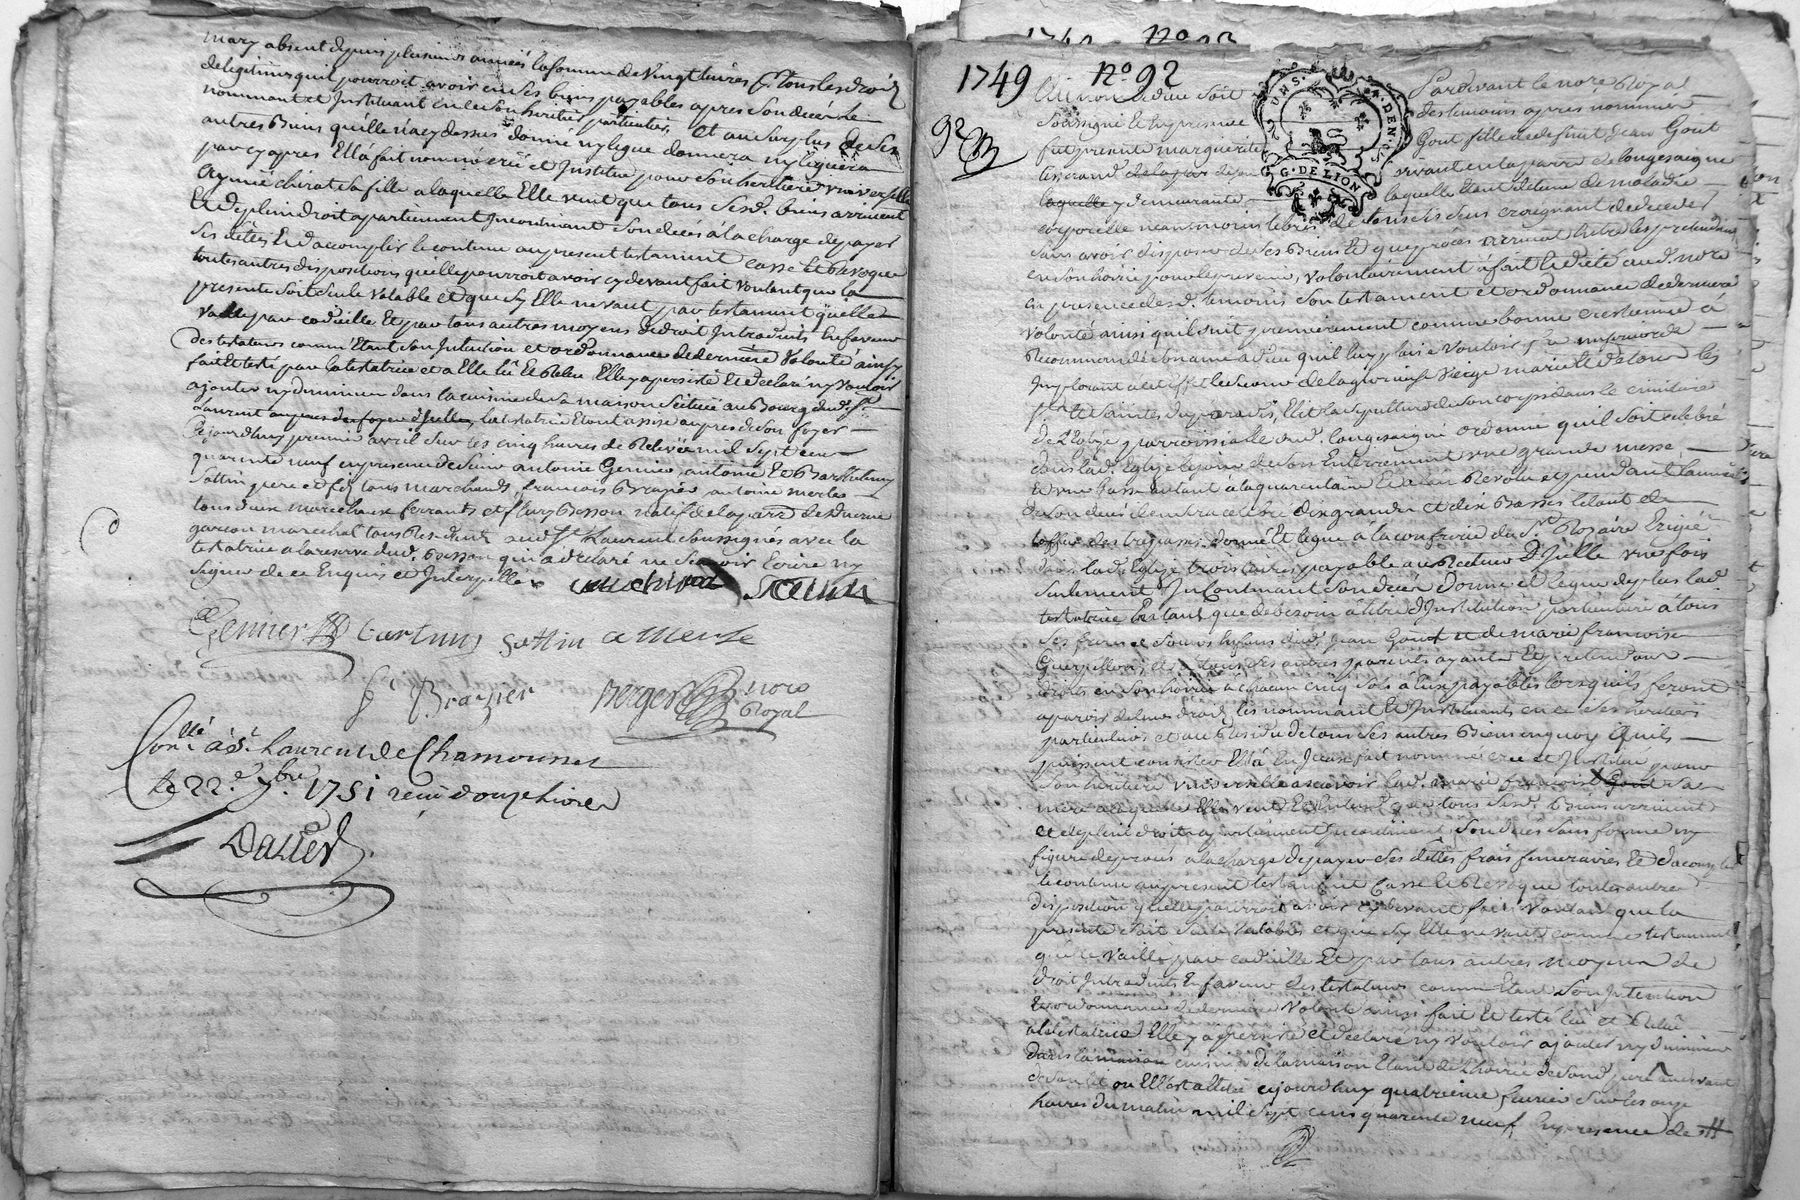 mary absent depuis plusieurs années la somme de vingt livres & tous les droits
de legitimes quil pourroit avoir en ses biens payables apres son decés le
nommant et Instituant en ce son heritier particulier, Et au surplus de ses
autres Biens quelle n'a cy dessus donné ny legué donnera ny leguera
par cy apres Ell'a fait nommé creé et Institué pour son heritiere universelle
sa fille a laquelle Elle veut que tous sesd. biens arrivent
Et de plein droit apartiennent Incontinant son decés a la charge de payer
ses dettes Et d'acomplir le contenu au present testament casse Et Revoque
toutes autres dispositions quelle pourroit avoir cy devant fait voulant que la
presente soit seule valable et que sy Elle ne vaut par testament quelle
vaille par codicille Et par tous autres moyens de droit Introduits En faveur
des testateurs comm'Etant son Intention et ordonnance de derniere volonté ainsy
fait Et testé par la testatrice et a Elle lû Et Relu Elle y a persisté Et declaré ny vouloir
ajouter ny diminuer dans la cuisine de sa maison scituée au Bourg dud. St.
Laurent la testatrice Etant assise aupres de son foyer
cejourd'huy premier avril sur les cinq heures de Relevée mil sept cens
quarante neuf en presence de antoine Genier antoine Et Barthelemy
Sottin pere et fils tous marchands, francois Brazier antoine merle
tous deux marechaux ferrants et fleury Besson natif de la parr. de
garcon marechal tous Residents aud. St. Laurent soussignés avec la
testatrice a la reserve dud. Besson qui a declaré ne scavoir Ecrire ny
signer de ce Enquis et Interpellé
Genier Sottin a Merle
f. Brazier Berger nore
Royal
Conllé à St. Laurent de Chamousset
le 22e. 7bre. 1751 reçu douze livres
1749 No 92
92
G. DE LION
Au nom de dieu soit Pardevant le nore Royal
soussigné Et En presence des temoins apres nommés
fut presente marguerite Gout fille de deffunt Jean Gout
vivant en la parr. de longesaigne
laquelle y demeurante laquelle Etant detenue de maladie
corporelle neantmoins libre de ses sens craignant de deceder
sans avoir disposé de ses Biens Et que procés n'arrivat Entre les pretendants
en son hoirie pour le prevenir, volontairement a fait aud. nore
en presence desd. temoins son testament et ordonnance de derniere
volonté ainsi quil suit premierement comme bonne crestienne a
Recommandé son ame a Dieu quil luy plaise vouloir
Implorant a cet effet le secour de la glorieuse vierge marie Et de tous les
Sts. Et Saintes du paradis, Elit la sepulture de son corps dans le cimitiere
de l'Eglize parroissialle dud. longesaigne ordonne quil soit celebré
dans lad. Eglize le jour de son Enterrement une grande messe
Et une basse autant a la quarentaine Et a l'an Revolu et pendant l'année
de son decés dix grandes et dix Basses
l'office des trépassés. donne Et legue a la confrerie du St. Rozaire Erigée
dans lad. Eglize trois livres payable au Recteur D'Icelle une fois
seulement Incontinant son decés donne et legue de plus lad.
testatrice En tant que de besoin a titre d'Institution particuliere a tous
ses freres et soeurs Enfans dud. Jean Gout et de marie francoise
Guerpillon, et a tous ses autres parents ayants Et pretendants
droits en son hoirie a chacun cinq sols a Eux payables lorsquils feront
aparoir de leurs droits les nommant Et Instituants en ce ses heritiers
particuliers et au Residu de tous ses autres Biens en quoy quils
puissent consister Ell'a fait nommé creé et Institué pour
son heritiere universelle ascavoir lad. marie francoise sa
mere a laquelle Elle veut Et Entend que tous sesd. Biens arrivent
et de plein droit apartiennent Incontinant son decés sans forme ny
figure de procés a la charge de payer ses dettes frais funeraires Et d'acomplir
le contenu au present testament Casse Et Revoque toutes autres
disposition quelle pourroit avoir cy devant fait voulant que la
presente soit seule valable et que sy Elle ne vaut comme testament
quelle vaille par codicille Et par tous autres moyens de
droit Introduits En faveur des testateurs comm'Etant son Intention
Et ordonnance de derniere volonté ainsi fait Et testé lû et Relu
a la testatrice Elle y a persisté et declaré ny vouloir ajouter ny diminuer
dans la maison de l'hoirie de sond. pere
de son lit ou Ell'est alitée cejourd'huy quatrieme fevrier sur les onze
heures du matin mil sept cens quarante neuf, En presence de